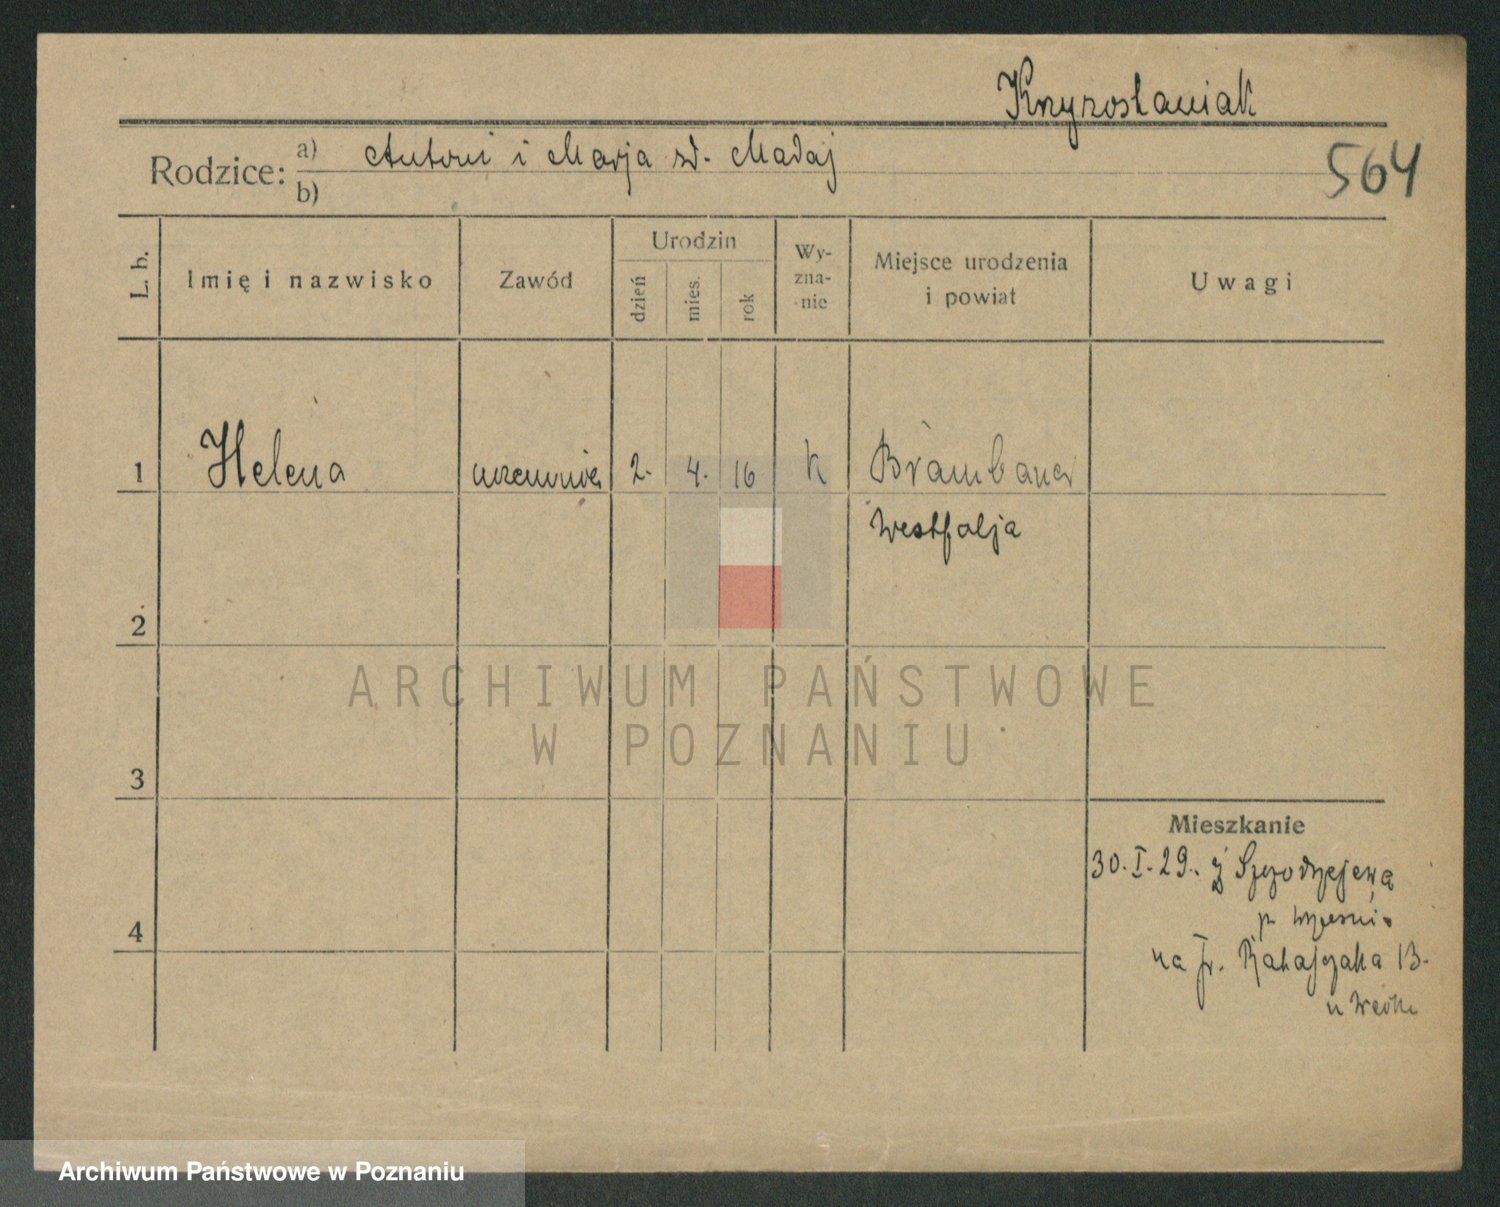 Krzyżostaniak
564
Rodzice: a) Antoni i Marja zd. Madaj
b)
L. b.
Imię i nazwisko
Zawód
Urodzin
dzień
mies.
rok
Wy-
zna-
nie
Miejsce urodzenia
i powiat
Uwagi
1 Helena uczennica 2. 4. 16 k Brambauer
Westfalja
2
ARCHIWUM PAŃSTWOWE
W POZNANIU
3
Mieszkanie
30. I. 29. z
p.
4
na Fr. Ratajczaka 13.
u
Archiwum Państwowe w Poznaniu